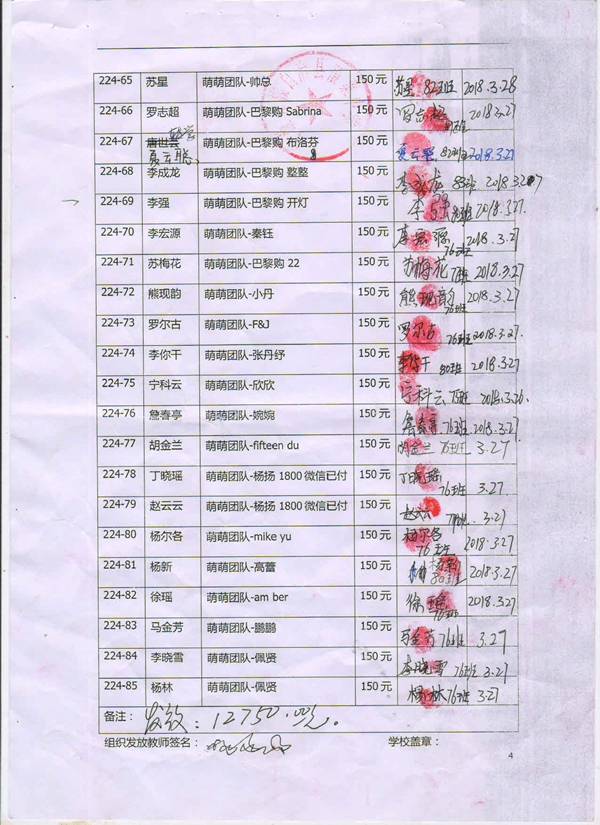 224-65 苏星 萌萌团队-帅总 150元 苏星 82班 2018.3.28
224-66 罗志超 萌萌团队-巴黎购 Sabrina 150元 2018.3.27
224-67 夏云聪 萌萌团队-巴黎购 布洛芬 150元 夏云聪 82班 2018.3.27
224-68 李成龙 萌萌团队-巴黎购 整整 150元 李成龙 83班 2018.3.27
224-69 李强 萌萌团队-巴黎购 开灯 150元 李强 2018.3.27.
224-70 李宏源 萌萌团队-秦钰 150元 李宏源 76班 2018.3.27
224-71 苏梅花 萌萌团队-巴黎购 22 150元 苏梅花 2018.3.27
224-72 熊现韵 萌萌团队-小丹 150元 熊现韵 76班 2018.3.27
224-73 罗尔古 萌萌团队-F&J 150元 罗尔古 76班 2018.3.27.
224-74 李你干 萌萌团队-张丹纾 150元 李你干 80班 2018.3.27
224-75 宁科云 萌萌团队-欣欣 150元 宁科云 75班 2018.3.26.
224-76 詹春亭 萌萌团队-婉婉 150元 詹春亭 76班 2018.3.27
224-77 胡金兰 萌萌团队-fifteen du 150元 胡金兰 76班 3.27
224-78 丁晓瑶 萌萌团队-杨扬 1800 微信已付 150元 丁晓瑶 76班 3.27.
224-79 赵云云 萌萌团队-杨扬 1800 微信已付 150元 赵云云 3.27
224-80 杨尔各 萌萌团队-mike yu 150元 杨尔各 76班 2018.3.27
224-81 杨新 萌萌团队-高蕾 150元 杨新 80班 2018.3.27
224-82 徐瑶 萌萌团队-am ber 150元 徐瑶 76班 2018.3.27
224-83 马金芳 萌萌团队-鹏鹏 150元 马金芳 76班 3.27
224-84 李晓雪 萌萌团队-佩贤 150元 李晓雪 76班 3.27
224-85 杨林 萌萌团队-佩贤 150元 杨林 76班 3.27
备注： 发放：12750.00元.
组织发放教师签名： 学校盖章：
4